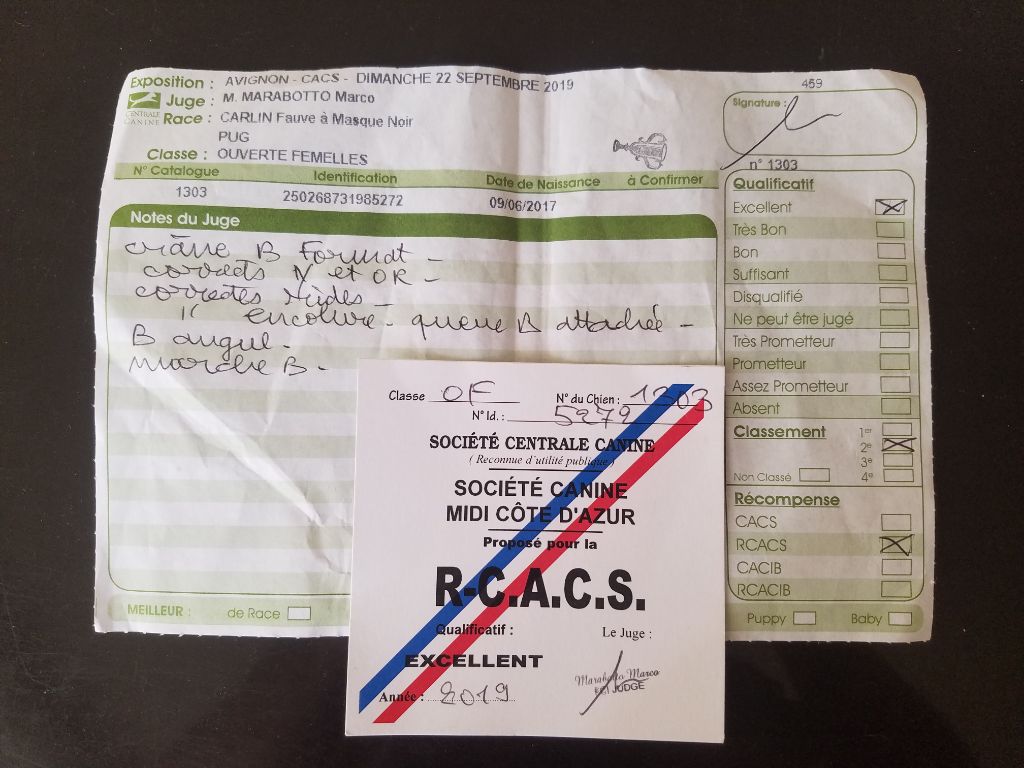 Exposition : AVIGNON - CACS - DIMANCHE 22 SEPTEMBRE 2019
459
Juge : M. MARABOTTO Marco
CENTRALE CANINE
Race : CARLIN Fauve à Masque Noir
PUG
Classe : OUVERTE FEMELLES
Signature :
n° 1303
N° Catalogue Identification Date de Naissance à Confirmer
1303 250268731985272 09/06/2017
Notes du Juge
crâne B Format -
corrects N et OR -
correctes rides -
" encolure - queue B attachée -
B angul -
marche B -
Qualificatif
Excellent
Très Bon
Bon
Suffisant
Disqualifié
Ne peut être jugé
Très Prometteur
Prometteur
Assez Prometteur
Absent
Classement 1er
2e
3e
Non Classé 4e
Récompense
CACS
RCACS
CACIB
RCACIB
MEILLEUR : de Race
Puppy Baby
Classe OF N° du Chien : 1303
N° Id. : 5272
SOCIÉTÉ CENTRALE CANINE
( Reconnue d'utilité publique )
SOCIÉTÉ CANINE
MIDI CÔTE D'AZUR
Proposé pour la
R-C.A.C.S.
Qualificatif : Le Juge :
EXCELLENT
Marabotto Marco
FCI JUDGE
Année : 2019